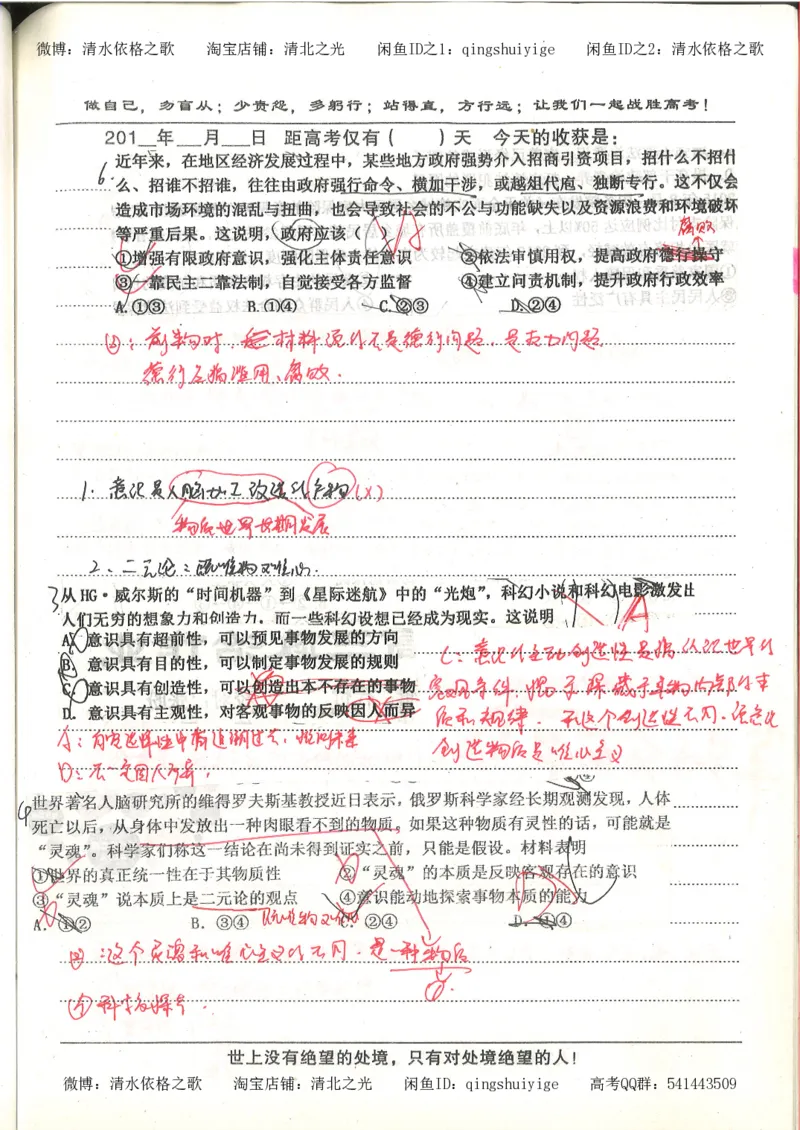 微博：清水依格之歌 淘宝店铺：清北之光 闲鱼ID之1：qingshuiyige 闲鱼ID之2：清水依格之歌
做自己，勿盲从；少责怨，多躬行；站得直，方行远；让我们一起战胜高考！
201__年___月___日 距高考仅有（ ）天 今天的收获是：
6.
近年来，在地区经济发展过程中，某些地方政府强势介入招商引资项目，招什么不招什
么、招谁不招谁，往往由政府强行命令、横加干涉，或越俎代庖、独断专行。这不仅会
造成市场环境的混乱与扭曲，也会导致社会的不公与功能缺失以及资源浪费和环境破坏
等严重后果。这说明，政府应该（
腐败
①增强有限政府意识，强化主体责任意识 ②依法审慎用权，提高政府德行操守
③一靠民主二靠法制，自觉接受各方监督 ④建立问责机制，提升政府行政效率
A.①③ B.①④ C.②③ D.②④
②：前半句对，材料说的不是德行问题，是权力问题
德行应搞滥用、腐败.
1. 意识是人脑加工改造的产物(×)
物质世界长期发展
2、二元论：既唯物又唯心.
3
从 HG·威尔斯的“时间机器”到《星际迷航》中的“光炮”，科幻小说和科幻电影激发出
人们无穷的想象力和创造力，而一些科幻设想已经成为现实。这说明（ ）A
A. 意识具有超前性，可以预见事物发展的方向
B. 意识具有目的性，可以制定事物发展的规则
C. 意识具有创造性，可以创造出本不存在的事物
D. 意识具有主观性，对客观事物的反映因人而异
C：意识的主动创造性是指认识世界
质和规律.
创造物质是唯心主义
D：不一定因人而异；
4
世界著名人脑研究所的维得罗夫斯基教授近日表示，俄罗斯科学家经长期观测发现，人体
死亡以后，从身体中发放出一种肉眼看不到的物质。如果这种物质有灵性的话，可能就是
“灵魂”。科学家们称这一结论在尚未得到证实之前，只能是假设。材料表明
①世界的真正统一性在于其物质性 ②“灵魂”的本质是反映客观存在的意识
③“灵魂”说本质上是二元论的观点 ④意识能动地探索事物本质的能力
既唯物又唯心
A. ①② B. ③④ C. ②④ D. ①④
②：这个灵魂和唯心主义的不同，是一种物质
④科学探索.
世上没有绝望的处境，只有对处境绝望的人！
微博：清水依格之歌 淘宝店铺：清北之光 闲鱼ID：qingshuiyige 高考QQ群：541443509